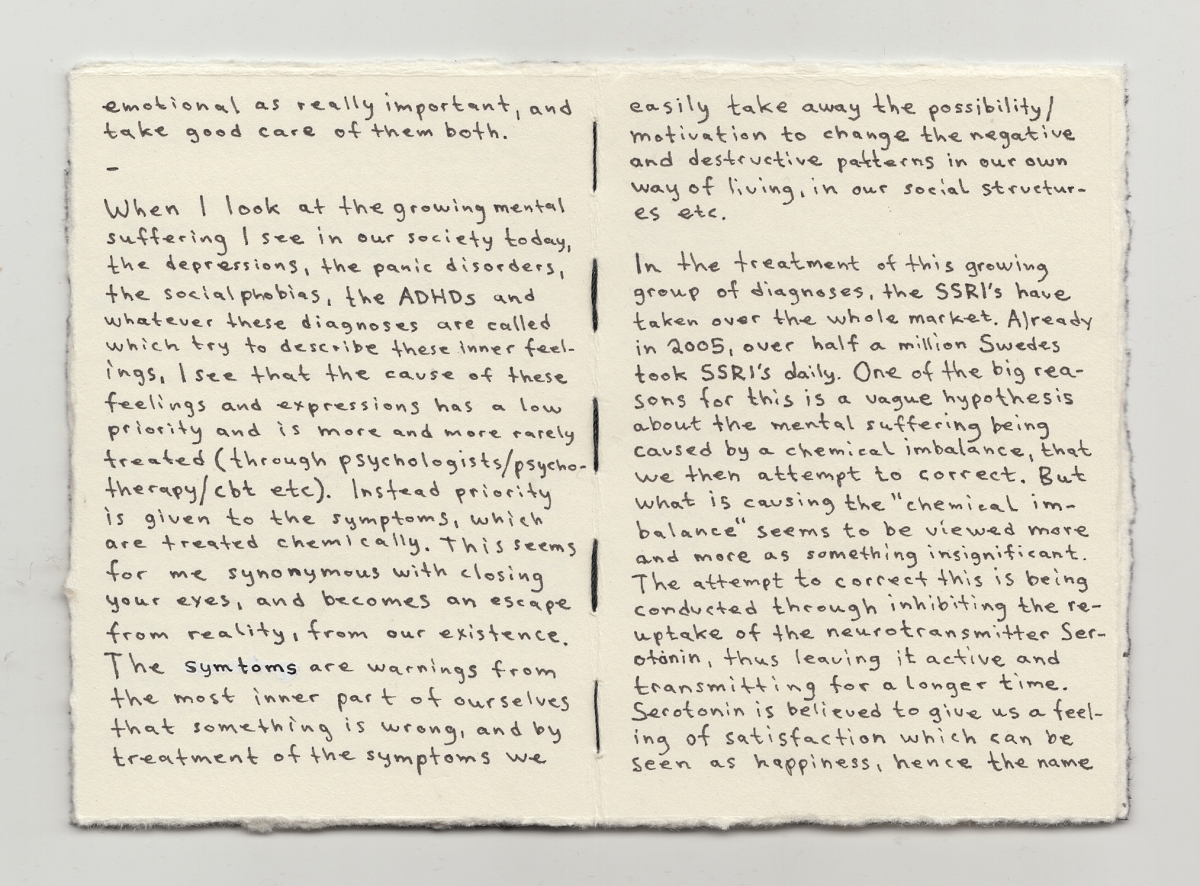 emotional as really important, and
take good care of them both.
-
When I look at the growing mental
suffering I see in our society today,
the depressions, the panic disorders,
the socialphobias, the ADHDs and
whatever these diagnoses are called
which try to describe these inner feel-
ings, I see that the cause of these
feelings and expressions has a low
priority and is more and more rarely
treated (through psychologists/psycho-
therapy/cbt etc). Instead priority
is given to the symptoms, which
are treated chemically. This seems
for me synonymous with closing
your eyes, and becomes an escape
from reality, from our existence.
The symtoms are warnings from
the most inner part of ourselves
that something is wrong, and by
treatment of the symptoms we
easily take away the possibility/
motivation to change the negative
and destructive patterns in our own
way of living, in our social structur-
es etc.
In the treatment of this growing
group of diagnoses, the SSRI's have
taken over the whole market. Already
in 2005, over half a million Swedes
took SSRI's daily. One of the big rea-
sons for this is a vague hypothesis
about the mental suffering being
caused by a chemical imbalance, that
we then attempt to correct. But
what is causing the "chemical im-
balance" seems to be viewed more
and more as something insignificant.
The attempt to correct this is being
conducted through inhibiting the re-
uptake of the neurotransmitter Ser-
otonin, thus leaving it active and
transmitting for a longer time.
Serotonin is believed to give us a feel-
ing of satisfaction which can be
seen as happiness, hence the name